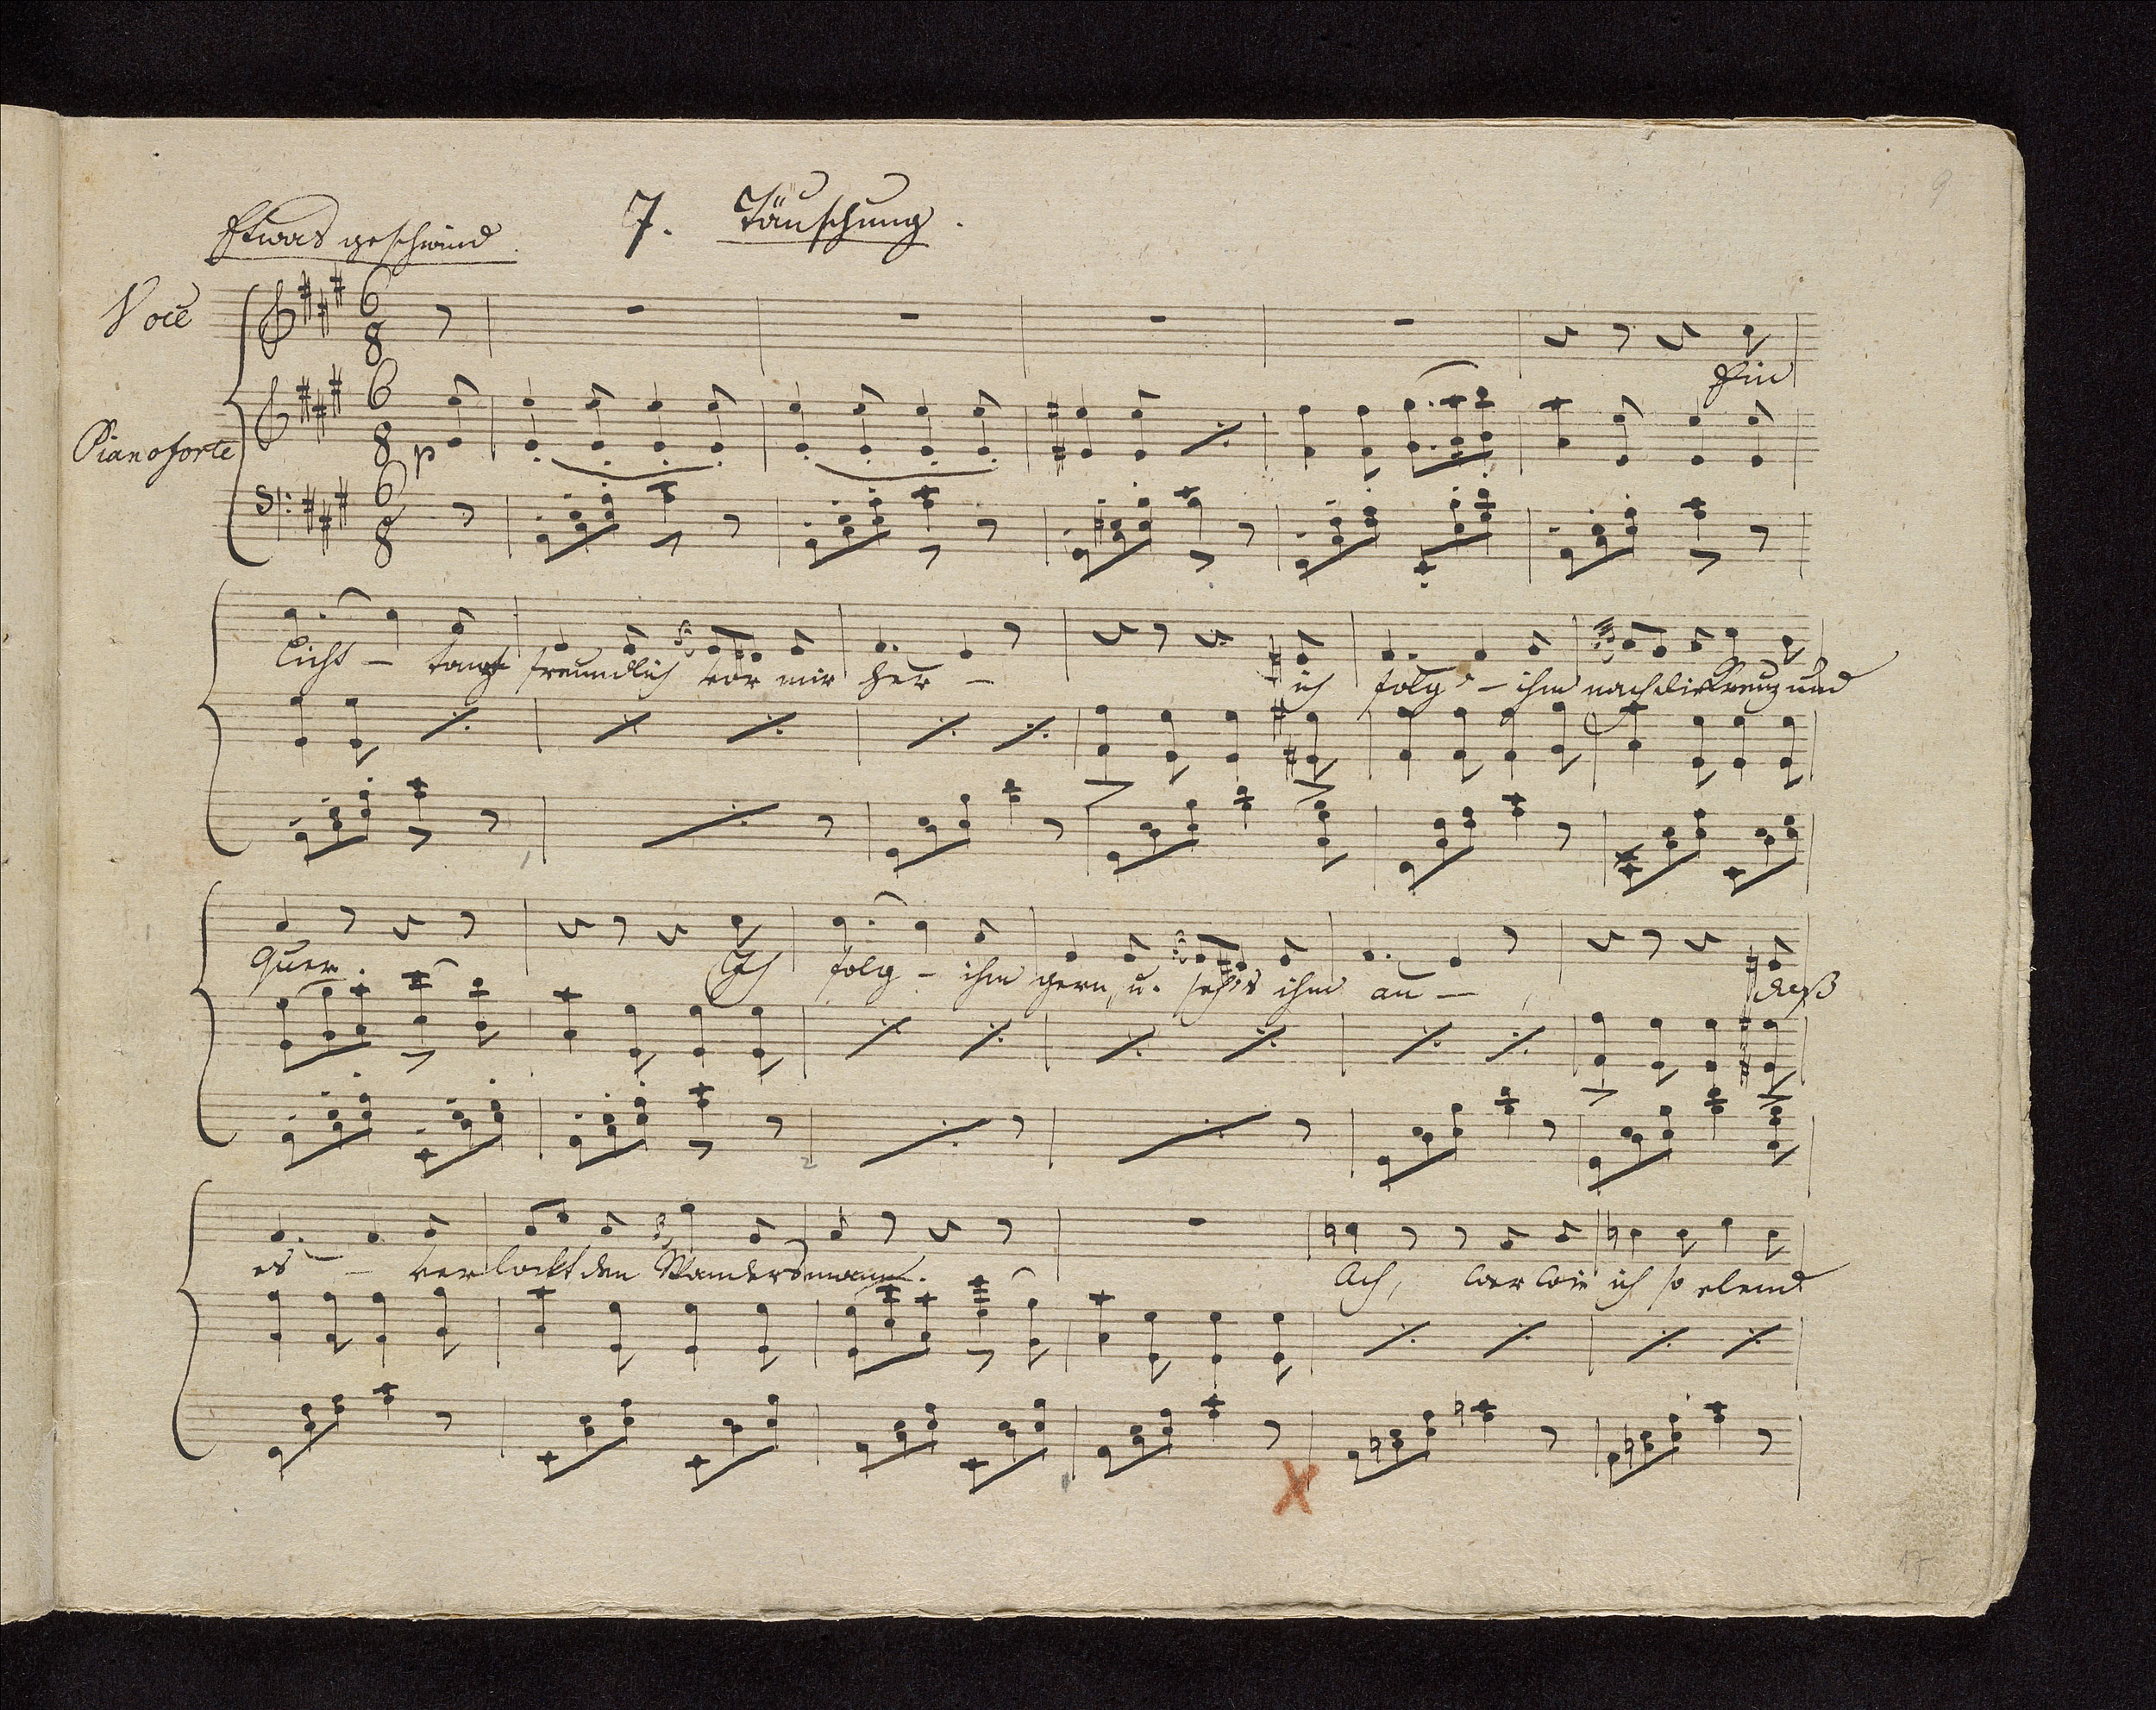 9
7. Täuschung.
Etwas geschwind
Voce
Pianoforte
6 8
6 8
6 8
p
Ein
Licht – tanzt freundlich vor mir her –
ich folg' – ihm nach die Kreuz und
Quer.
Ich folg – ihm gern, u. seh's ihm an –
daß
es – – verlockt den Wandersmann.
Ach, wer wie ich so elend
X
17